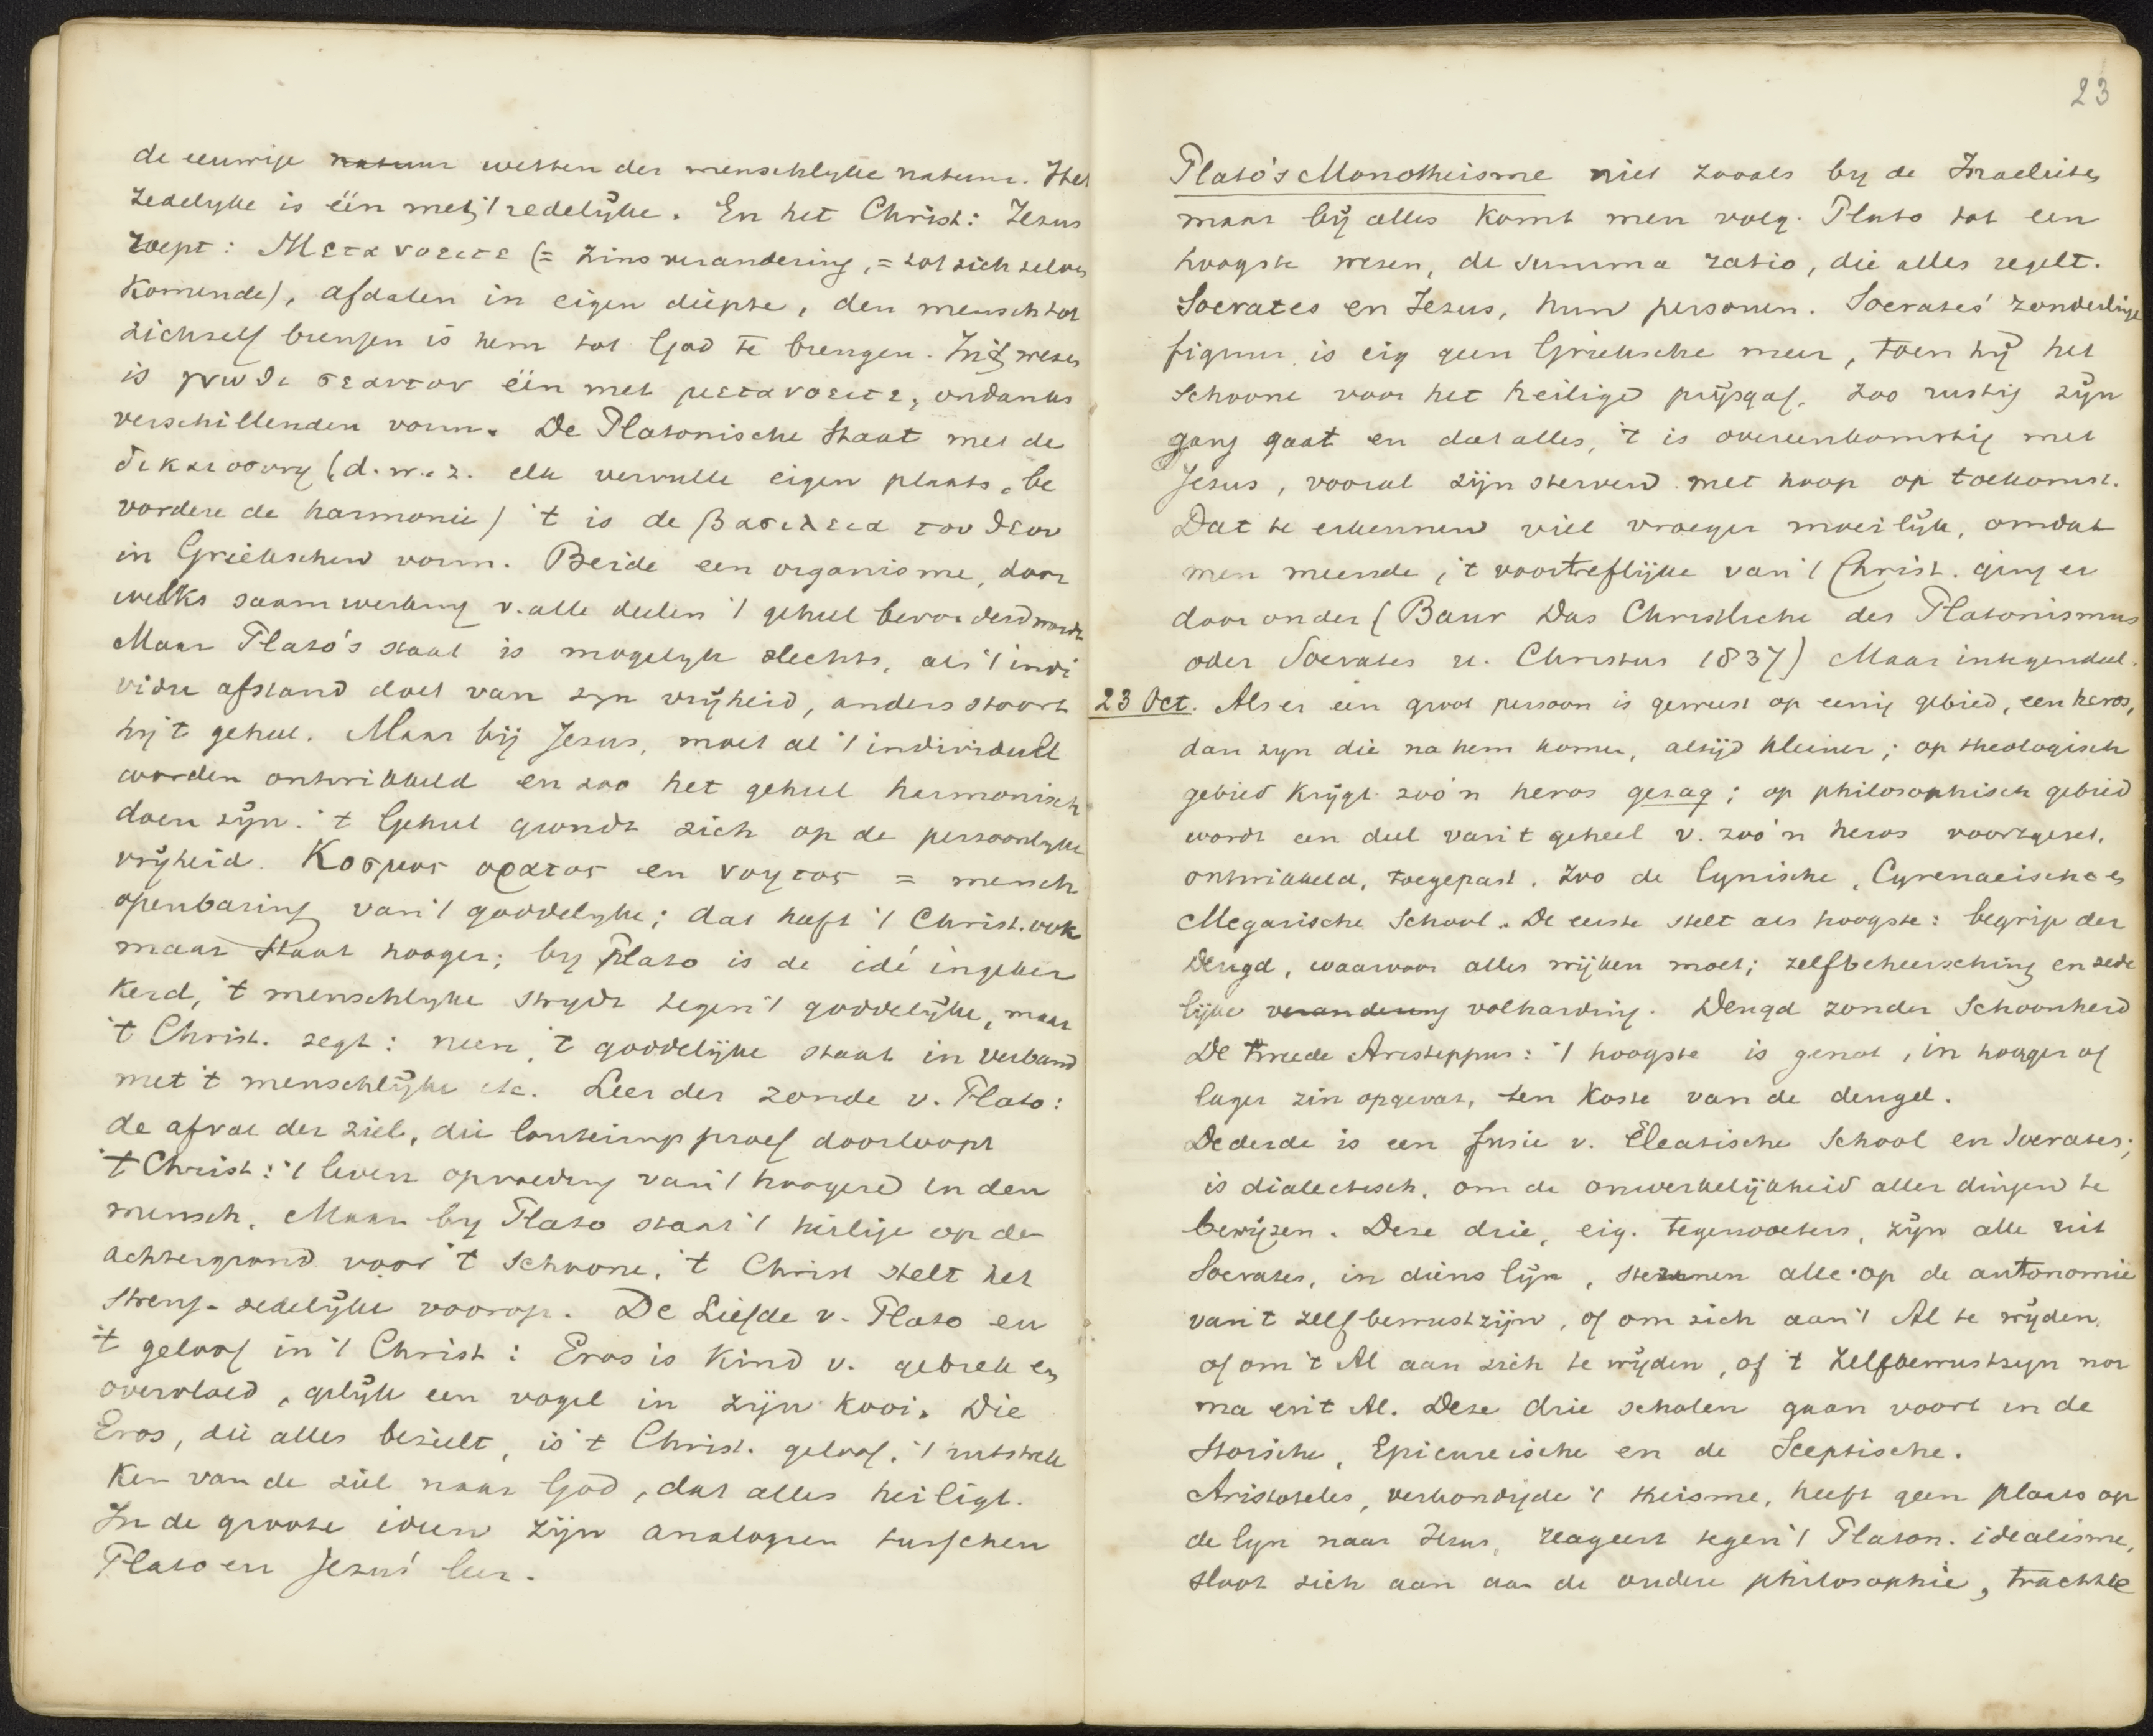 de eeuwige natuur wetten der menschlyke natuur. Het
zedelyke is één met 't redelijke. En het Christ: Jezus
roept: Μετανοειτε (= Zinsverandering, = tot zich zelven
Komende), afdalen in eigen diepte, den mensch tot
zichzelf brengen is hem tot God te brengen. In 't wezen
is γνωθι σεαυτον één met μετανοειτε, ondanks
verschillenden vorm. De Platonische Staat met de
δικαιοσυνη (d.w.z. elk vervulle eigen plaats, be
vordere de harmonie) 't is de βασιλεια του θεου
in Griekschen vorm. Beide een organisme, door
welks saamwerking v. alle deelen 't geheel bevorderd wordt
Maar Plato's staat is mogelyk slechts, als 't indi
vidu afstand doet van zyn vrijheid, anders stoort
hij 't geheel. Maar bij Jezus, moet al 't individueel
worden ontwikkeld en zoo het geheel harmonisch
doen zijn. 't Geheel grondt zich op de persoonlyke
vrijheid. Κοσμος ορατος en νοητος = mensch
openbaring van 't goddelyke; dat heeft 't Christ. ook
maar staat hooger; by Plato is de idé ingeker
kerd, 't menschlyke strydt tegen 't goddelijke, maar
't Christ. zegt: neen, 't goddelijke staat in verband
met 't menschlijke etc. Leer der zonde v. Plato:
de afval der ziel, die louteringsproef doorloopt
't Christ: 't leven opvoeding van 't hoogere in den
mensch. Maar by Plato staat 't heilige op den
achtergrond voor 't Schoone, 't Christ stelt het
streng-zedelijke voorop. De Liefde v. Plato en
't geloof in 't Christ: Eros is Kind v. gebrek en
overvloed, gelijk een vogel in zijn Kooi. Die
Eros, die alles bezielt, is 't Christ. geloof, 't uitstrek
ken van de ziel naar God, dat alles heiligt.
In de groote ideen zijn analogien tusschen
Plato en Jezus' leer.
23
Plato's Monotheisme niet zooals by de Israelieten
maar bij alles komt men volg. Plato tot een
hoogste wezen, de summa ratio, die alles regelt.
Socrates en Jezus, hun personen. Socrates' zonderlinge
figuur is eig geen Grieksche meer, toen hij het
schoone voor het heilige prijsgaf. Zoo rustig zijn
gang gaat en dat alles, 't is overeenkomstig met
Jezus, vooral zijn sterven met hoop op toekomst.
Dat te erkennen viel vroeger moeilijk, omdat
men meende, 't voortreflijke van 't Christ. ging er
door onder (Baur Das Christliche des Platonismus
oder Socrates u. Christus 1837) Maar integendeel.
23 Oct. Als er een groot persoon is geweest op eenig gebied, een heros,
dan zyn die na hem komen, altijd kleiner; op theologisch
gebied krijgt zoo'n heros gezag; op philosophisch gebied
wordt een deel van 't geheel v. zoo'n heros voortgezet,
ontwikkeld, toegepast. Zoo de Cynische, Cyrenaeische en
Megarische School. De eerste stelt als hoogste: begrip der
Deugd, waarvoor alles wijken moet; zelfbeheersching en zede
lijke verandering volharding. Deugd zonder Schoonheid
De tweede Aristippus: 't hoogste is genot, in hooger of
lager zin opgevat, ten Koste van de deugd.
De derde is een fusie v. Eleatische School en Socrates;
is dialectisch, om de onwerkelijkheid aller dingen te
bewijzen. Deze drie, eig. tegenvoeters, zijn alle uit
Socrates, in diens lijn, steunen alle op de autonomie
van 't zelfbewustzijn, of om zich aan 't Al te wijden,
of om 't Al aan zich te wijden, of 't zelfbewustzyn nor
ma en 't Al. Deze drie scholen gaan voort in de
Stoische, Epicureische en de Sceptische.
Aristoteles, verkondigde 't theisme, heeft geen plaats op
de lyn naar Jezus, reageert tegen 't Platon. idealisme,
sloot zich aan aan de oudere philosophie, trachtte